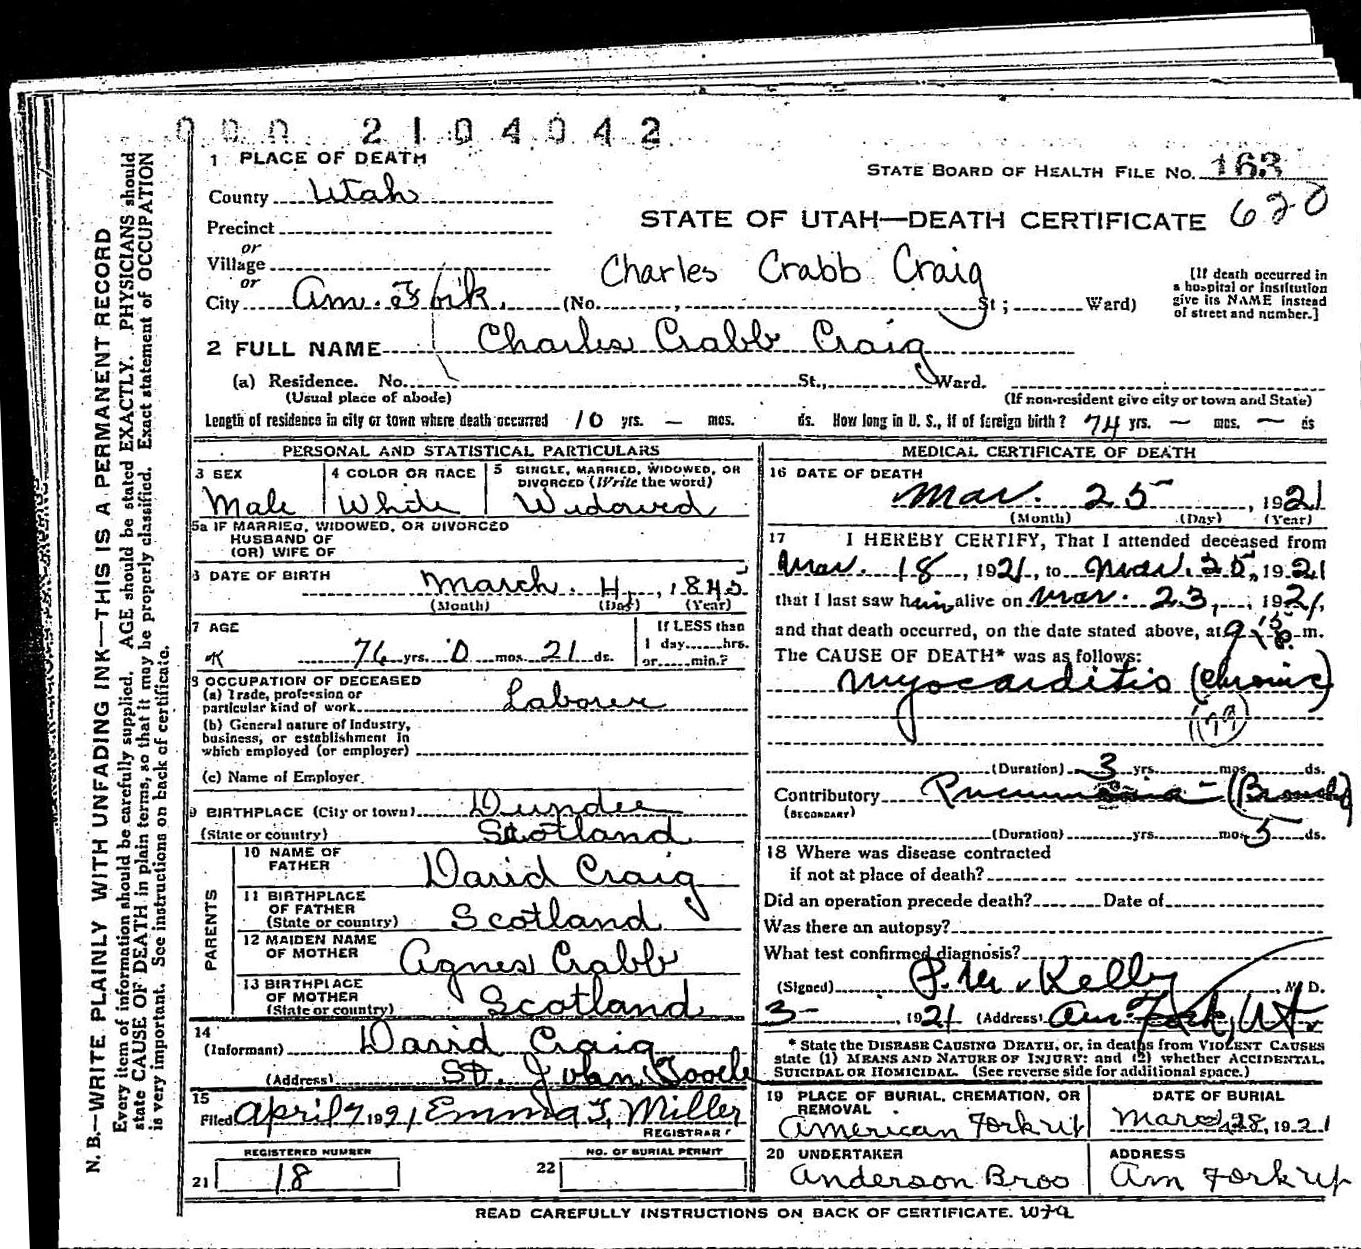 000 2104042
1 PLACE OF DEATH
STATE BOARD OF HEALTH FILE NO. 163
County Utah
STATE OF UTAH—DEATH CERTIFICATE 620
Precinct
or
Village
Charles Crabb Craig
[If death occurred in
a hospital or institution
give its NAME instead
of street and number.]
or
City Am. Fork. (No. , St ; Ward)
2 FULL NAME Charles Crabb Craig
(a) Residence. No. St., Ward.
(Usual place of abode) (If non-resident give city or town and State)
Length of residence in city or town where death occurred 10 yrs. — mos. ds. How long in U. S., if of foreign birth? 74 yrs. — mos. — ds
PERSONAL AND STATISTICAL PARTICULARS
3 SEX
Male
4 COLOR OR RACE
White
5 SINGLE, MARRIED, WIDOWED, OR
DIVORCED (Write the word)
Widowed
5a IF MARRIED, WIDOWED, OR DIVORCED
HUSBAND OF
(OR) WIFE OF
6 DATE OF BIRTH March 4, 1845
(Month) (Day) (Year)
7 AGE
76 yrs. 0 mos. 21 ds.
If LESS than
1 day, hrs.
or min.?
8 OCCUPATION OF DECEASED
(a) Trade, profession or
particular kind of work Laborer
(b) General nature of Industry,
business, or establishment in
which employed (or employer)
(c) Name of Employer
9 BIRTHPLACE (City or town) Dundee
(State or country) Scotland
PARENTS
10 NAME OF
FATHER David Craig
11 BIRTHPLACE
OF FATHER
(State or country) Scotland
12 MAIDEN NAME
OF MOTHER Agnes Crabb
13 BIRTHPLACE
OF MOTHER
(State or country) Scotland
14
(Informant) David Craig
(Address) St. John Tooele
15
Filed April 7 1921 Emma T. Miller
REGISTRAR
REGISTERED NUMBER
21 18
NO. OF BURIAL PERMIT
22
MEDICAL CERTIFICATE OF DEATH
16 DATE OF DEATH
Mar. 25, 1921
(Month) (Day) (Year)
17 I HEREBY CERTIFY, That I attended deceased from
Mar. 18, 1921, to Mar. 25, 1921
that I last saw him alive on Mar. 23, 1921,
and that death occurred, on the date stated above, at 9 15 P. m.
The CAUSE OF DEATH* was as follows:
Myocarditis (Chronic)
(79)
(Duration) 3 yrs. mos. ds.
Contributory Pneumonia - (Bronch)
(SECONDARY)
(Duration) yrs. mos. 5 ds.
18 Where was disease contracted
if not at place of death?
Did an operation precede death? Date of
Was there an autopsy?
What test confirmed diagnosis?
(Signed) P. M. Kelly, M D.
3- , 1921 (Address) Am Fork, Ut.
* State the DISEASE CAUSING DEATH, or, in deaths from VIOLENT CAUSES
state (1) MEANS AND NATURE OF INJURY: and (2) whether ACCIDENTAL,
SUICIDAL OR HOMICIDAL. (See reverse side for additional space.)
19 PLACE OF BURIAL, CREMATION, OR
REMOVAL
American Fork ut
DATE OF BURIAL
March 28, 1921
20 UNDERTAKER
Anderson Bros
ADDRESS
Am Fork ut
READ CAREFULLY INSTRUCTIONS ON BACK OF CERTIFICATE.
N. B.—WRITE PLAINLY WITH UNFADING INK—THIS IS A PERMANENT RECORD
Every item of information should be carefully supplied. AGE should be stated EXACTLY. PHYSICIANS should
state CAUSE OF DEATH in plain terms, so that it may be properly classified. Exact statement of OCCUPATION
is very important. See instructions on back of certificate.